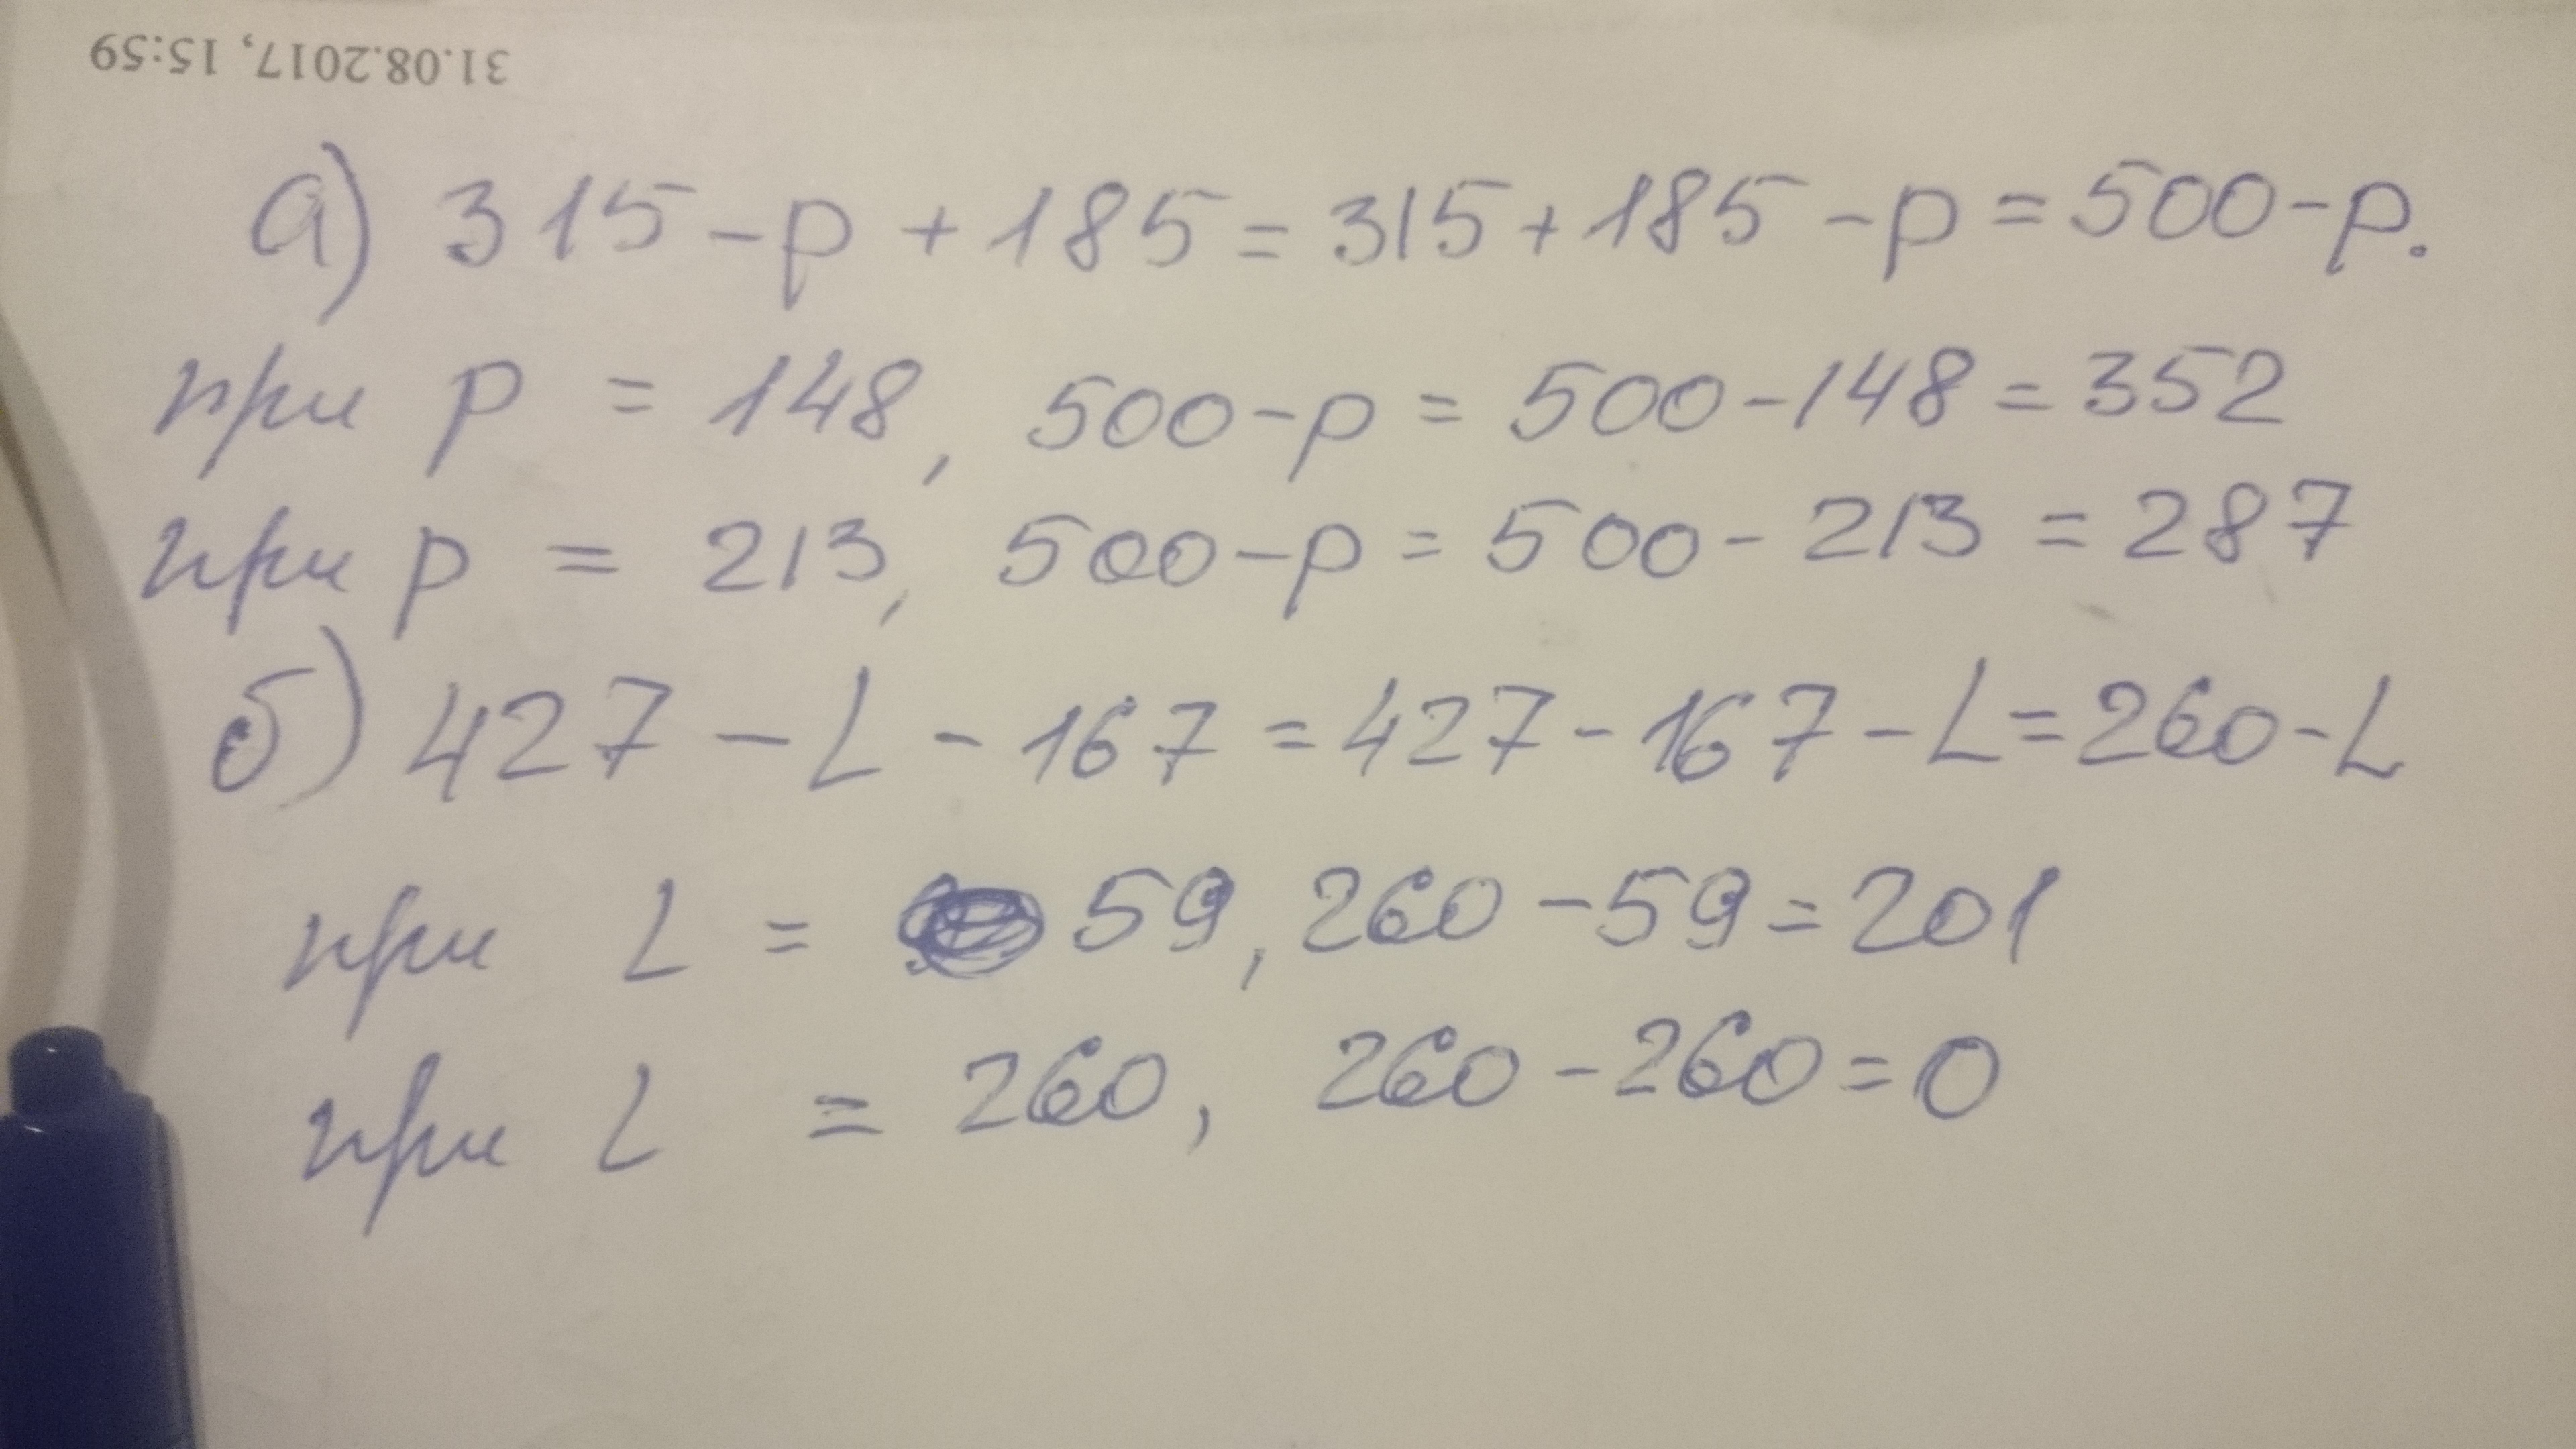 31.08.2017, 15:59
а) 315-p+185=315+185-p=500-p.
при p = 148, 500-p = 500-148=352
при p = 213, 500-p = 500-213 = 287
б) 427-L-167=427-167-L=260-L
при L = 59, 260-59=201
при L = 260, 260-260=0